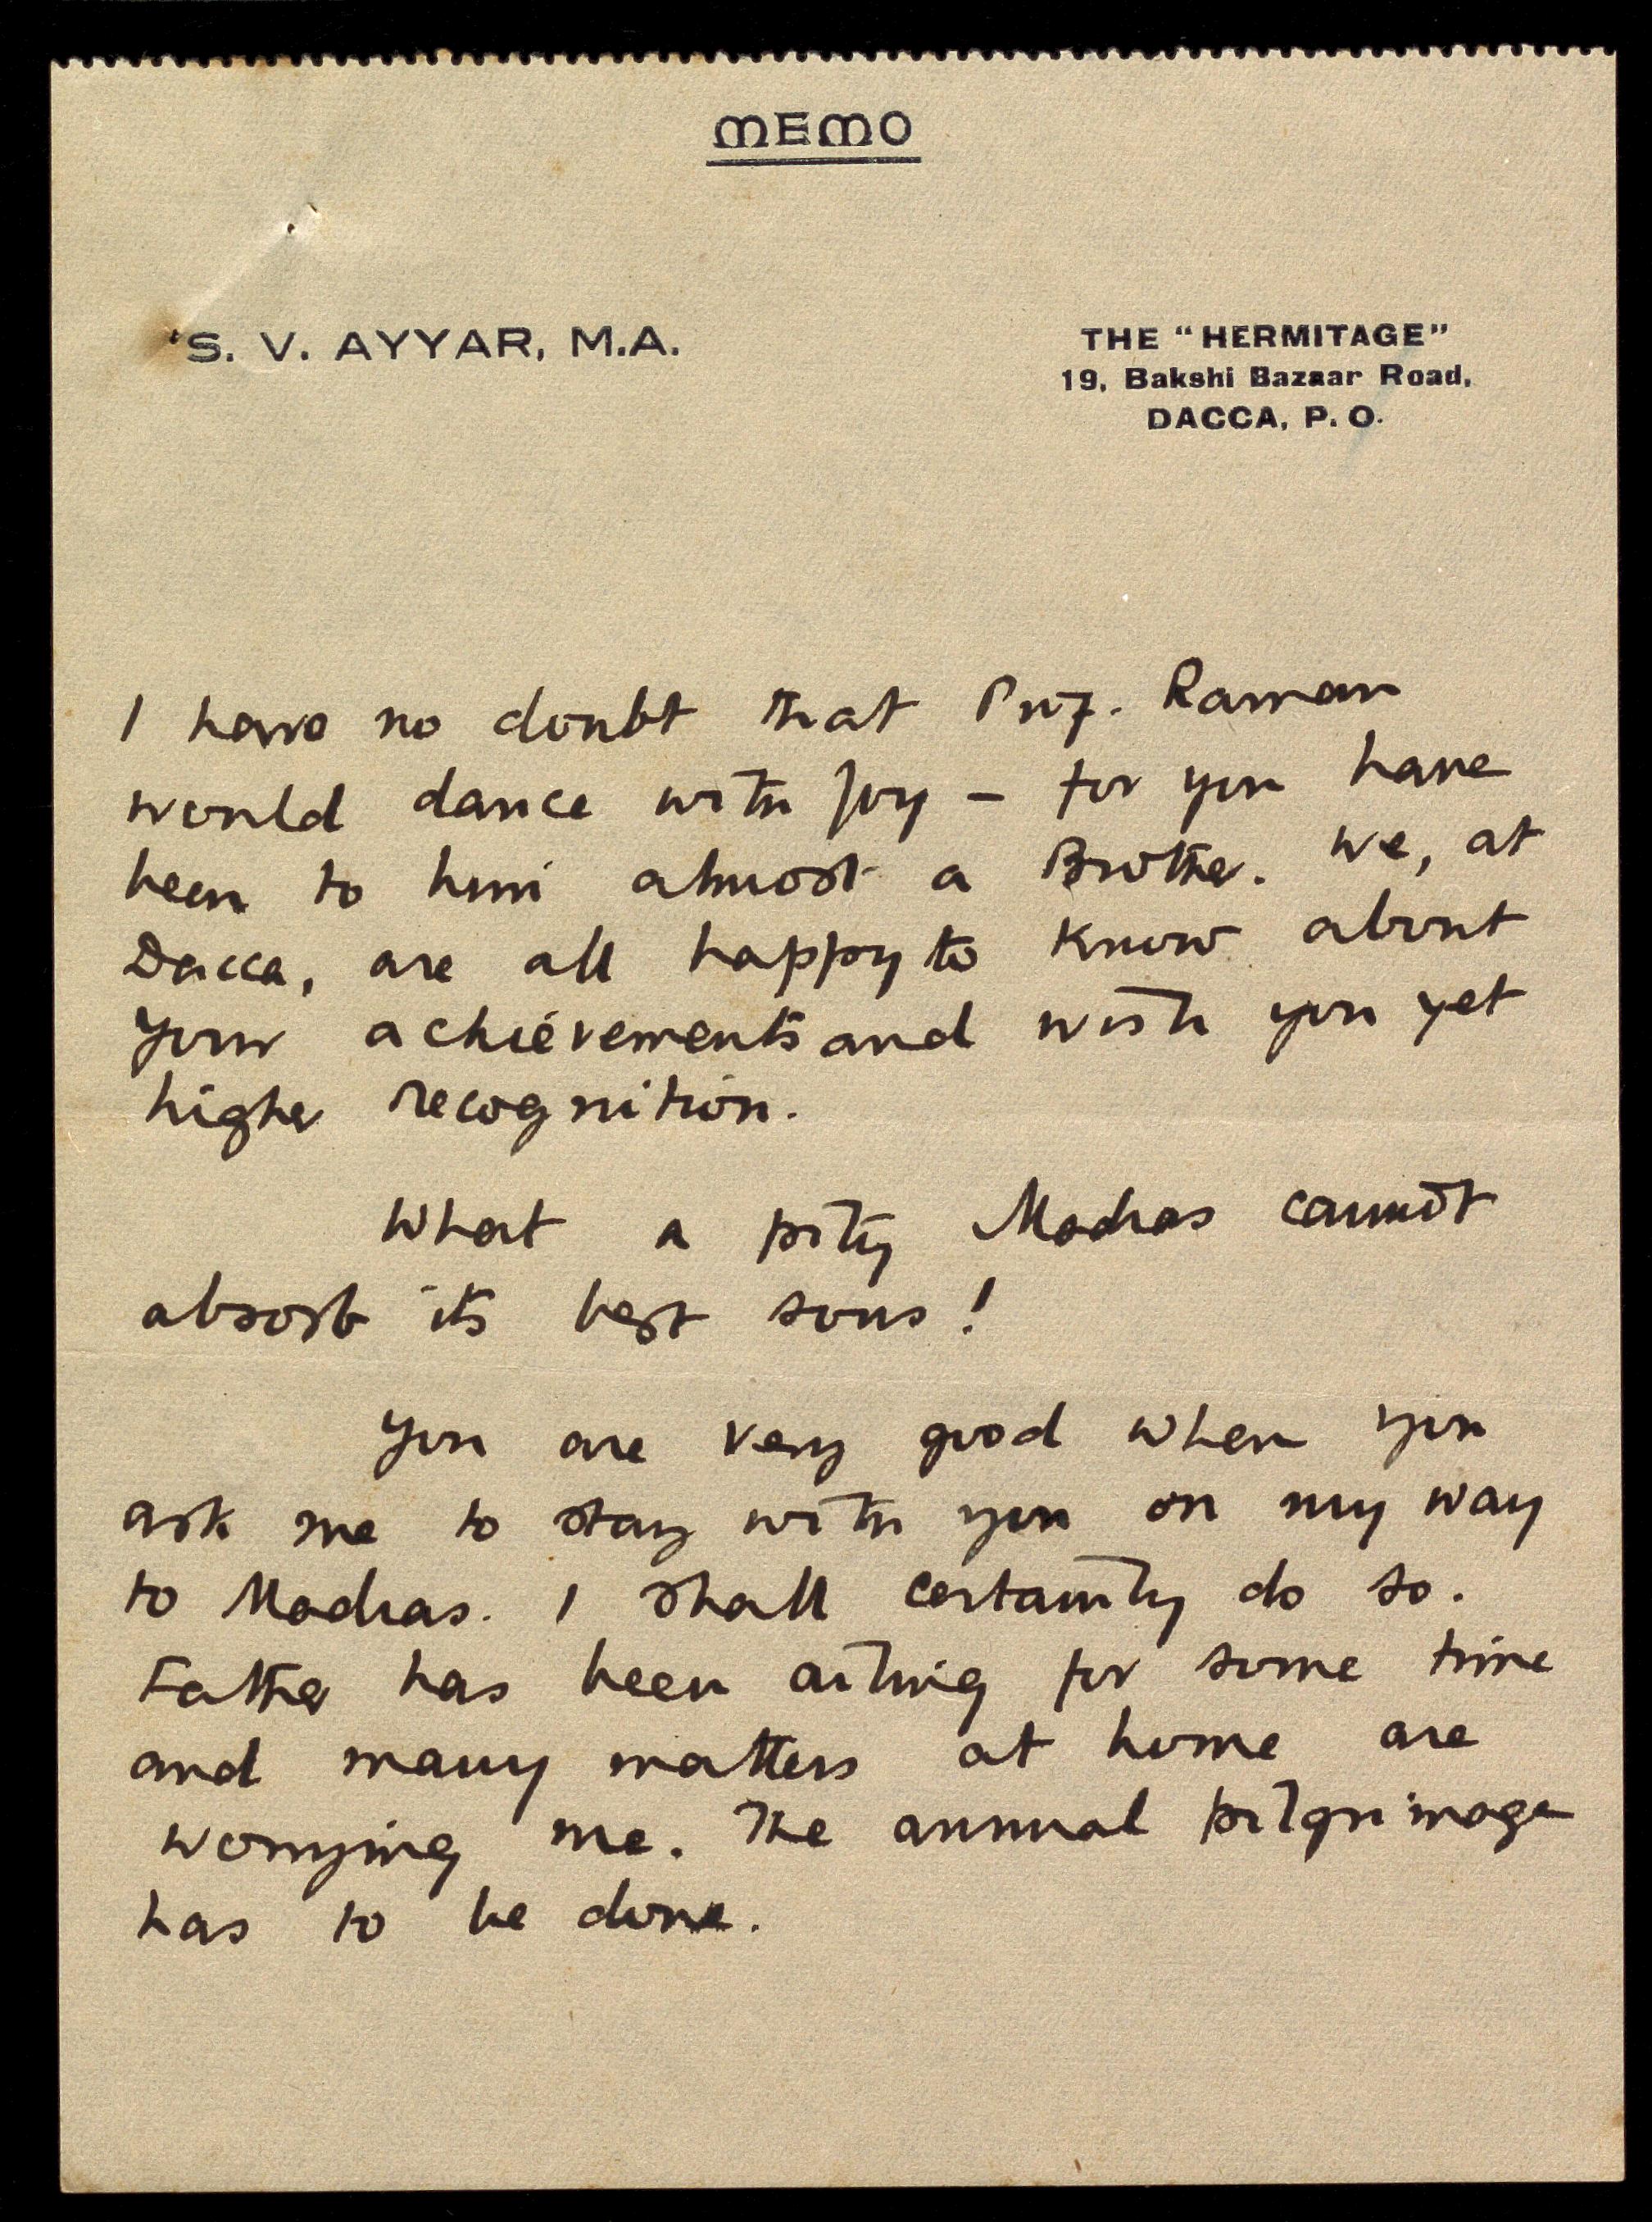 MEMO
S. V. AYYAR, M.A.
THE "HERMITAGE"
19, Bakshi Bazaar Road,
DACCA, P. O.
I have no doubt that Prof. Raman
would dance with joy – for you have
been to him almost a Brother. We, at
Dacca, are all happy to know about
your achievements and wish you yet
higher recognition.
What a pity Madras cannot
absorb its best sons!
You are very good when you
ask me to stay with you on my way
to Madras. I shall certainly do so.
Father has been ailing for some time
and many matters at home are
worrying me. The annual pilgrimage
has to be done.